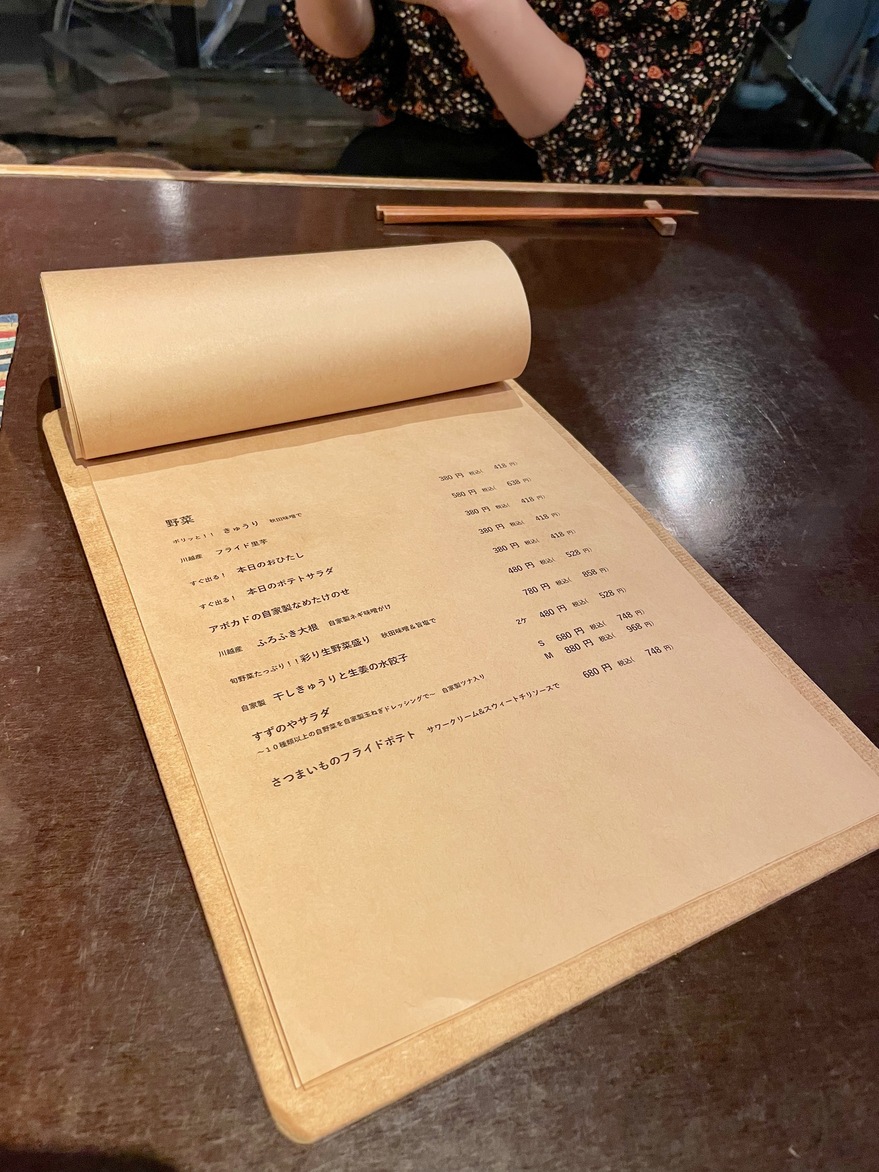 野菜
ポリッと！！ きゅうり 秋田味噌で 380 円 税込( 418 円)
川越産 フライド里芋 580 円 税込( 638 円)
すぐ出る！ 本日のおひたし 380 円 税込( 418 円)
すぐ出る！ 本日のポテトサラダ 380 円 税込( 418 円)
アボカドの自家製なめたけのせ 380 円 税込( 418 円)
川越産 ふろふき大根 自家製ネギ味噌がけ 480 円 税込( 528 円)
旬野菜たっぷり！！彩り生野菜盛り 秋田味噌＆旨塩で 780 円 税込( 858 円)
自家製 干しきゅうりと生姜の水餃子 2ケ 480 円 税込( 528 円)
すずのやサラダ S 680 円 税込( 748 円)
～１０種類以上の自野菜を自家製玉ねぎドレッシングで～ 自家製ツナ入り M 880 円 税込( 968 円)
さつまいものフライドポテト サワークリーム&スウィートチリソースで 680 円 税込( 748 円)